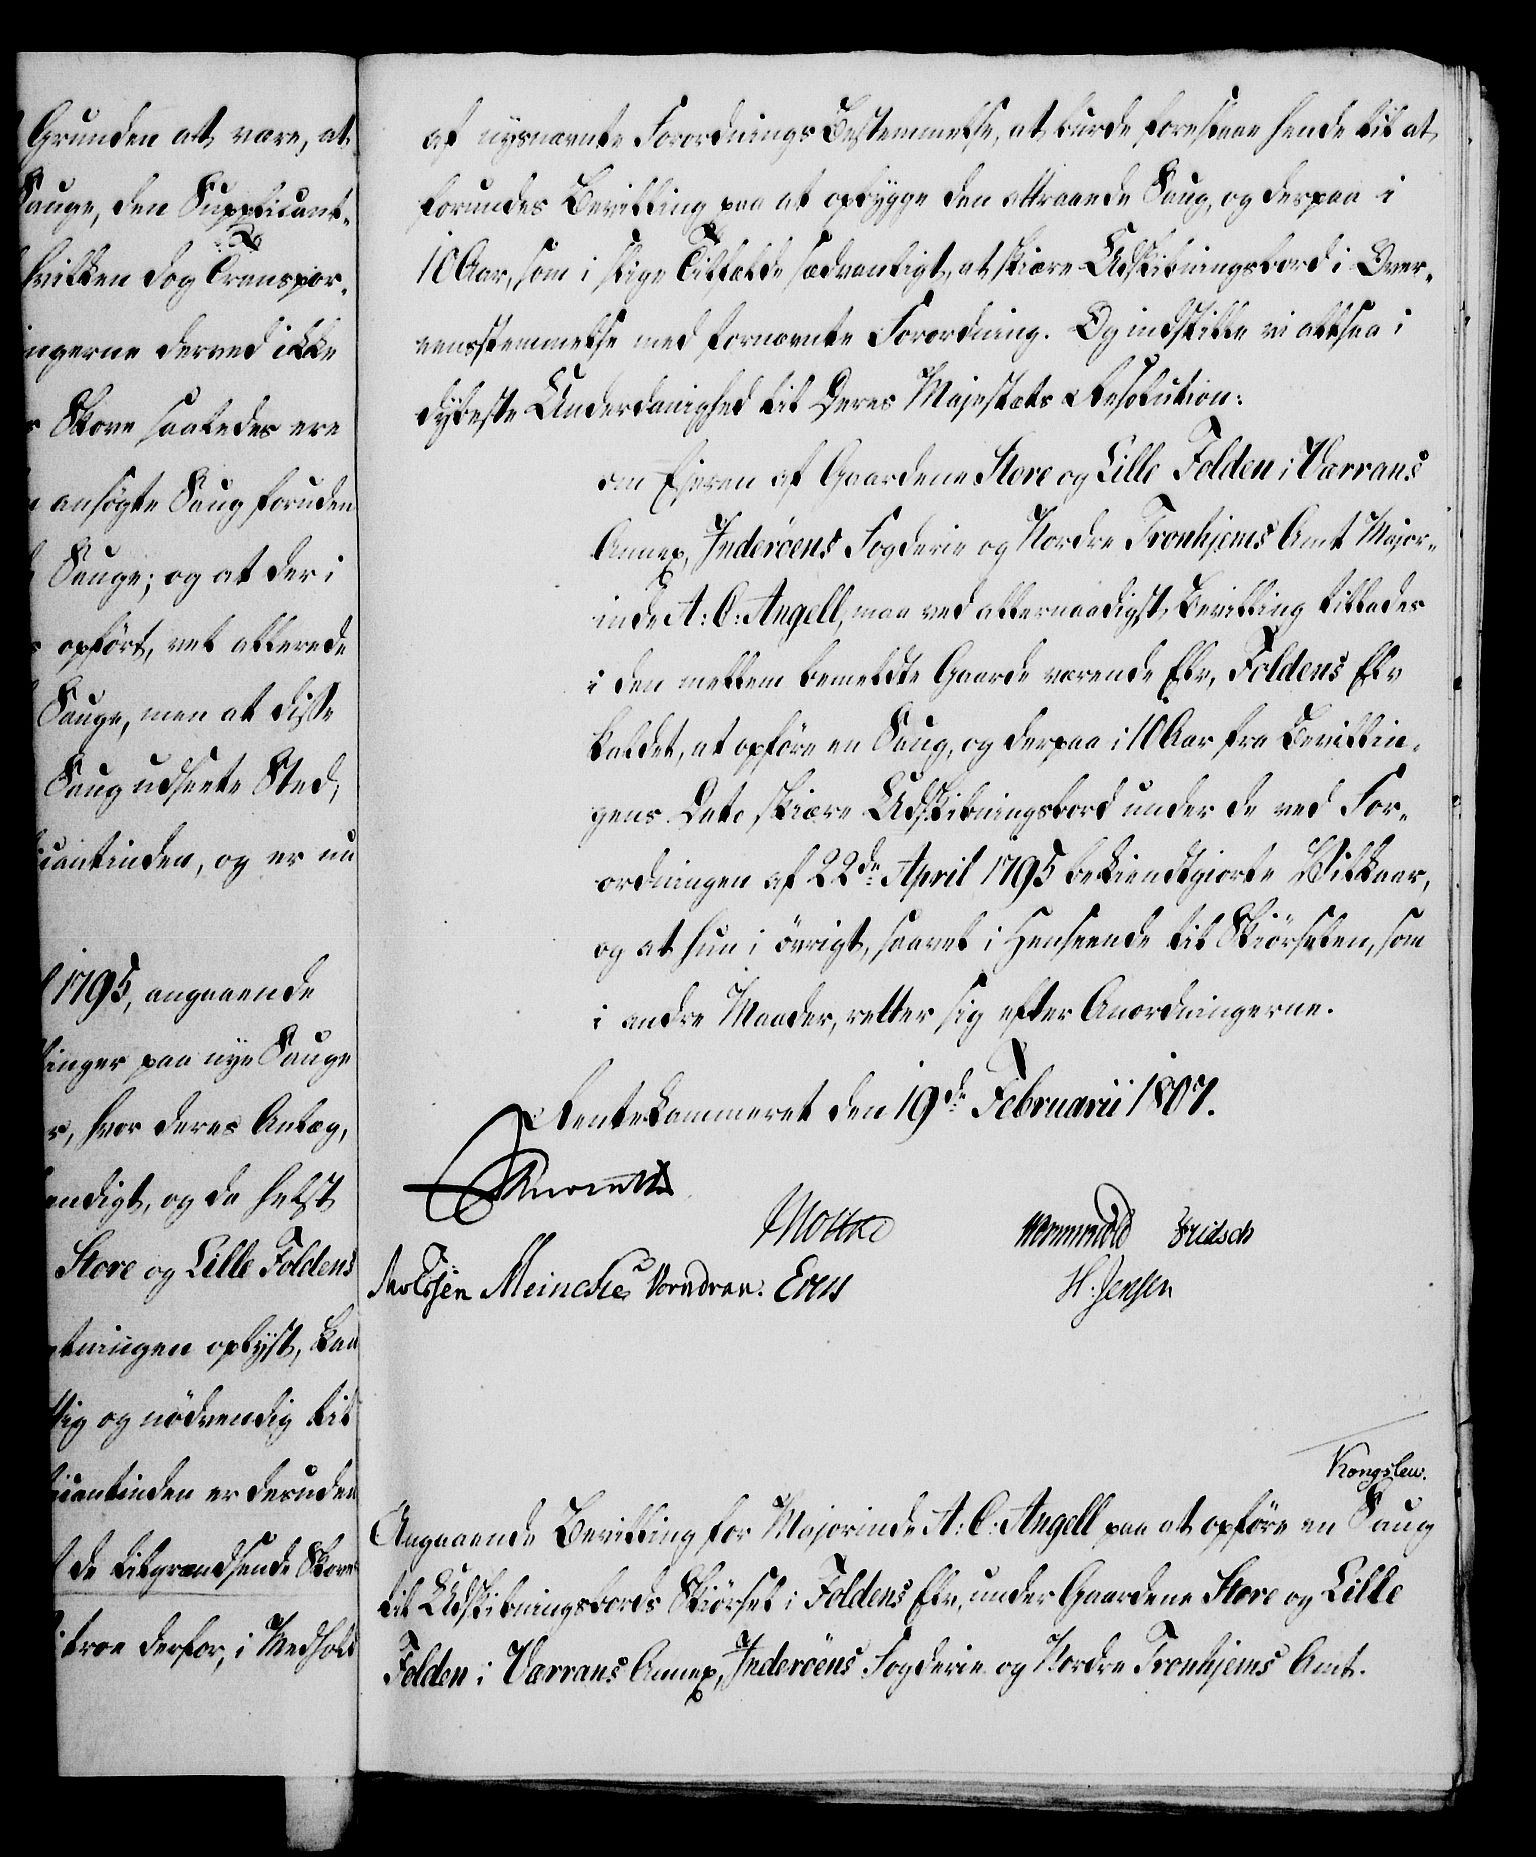 Grunden at være, at
Sauge, den Supplicant-
hvilken dog Transpor-
ingerne derved ikke
Skove saaledes ere
ansögte Saug foruden
Sauge; og at der i
opført, vel allerede
Sauge, men at disse
Saug udseete Sted,
icantinden, og er nu
1795, angaaende
linger paa nye Sauge
r, hvor deres Anlæg,
endigt, og da helst
Store og Lille Foldens
etningen oplyst, kan
tig og nödvendig til
icantinden er desuden
de tilgrændsende Skove
troe derfor, i Medhold
af nysnævnte Forordnings Bestemmelse, at burde forestaae hende til at
forundes Bevilling paa at opbygge den attraaede Saug, og derpaa i
10 Aar, som i slige Tilfælde sædvanligt, at skiære Udskibningsbord i Over-
eensstemmelse med fornævnte Forordning. Og indstille vi altsaa i
dybeste Underdanighed til Deres Majestæts Resolution:
om Ejeren af Gaardene Store og Lille Folden i Værrans
Annex, Inderöens Fogderie og Nordre Tronhjems Amt Major-
inde A: C: Angell, maa ved allernaadigst Bevilling tillades
i den mellem bemeldte Gaarde værende Elv, Foldens Elv
kaldet, at opføre en Saug, og derpaa i 10 Aar fra Bevillin-
gens Dato skiære Udskibningsbord under de ved For-
ordningen af 22de April 1795 bekiendtgiorte Vilkaar,
og at hun i övrigt, saavel i Henseende til Skiørselen, som
i andre Maader, retter sig efter Anordningerne.
Rentekammeret den 19de Februarii 1807.
Moltke Wormskiold Fridsch
Meincke Vorndran. Eeus H. Jensen
Kongslew.
Angaaende Bevilling for Majorinde A: C: Angell paa at opføre en Saug
til Udskibningsbords Skiørsel i Foldens Elv, under Gaardene Store og Lille
Folden i Værrans Annex, Inderöens Fogderie og Nordre Tronhjems Amt.